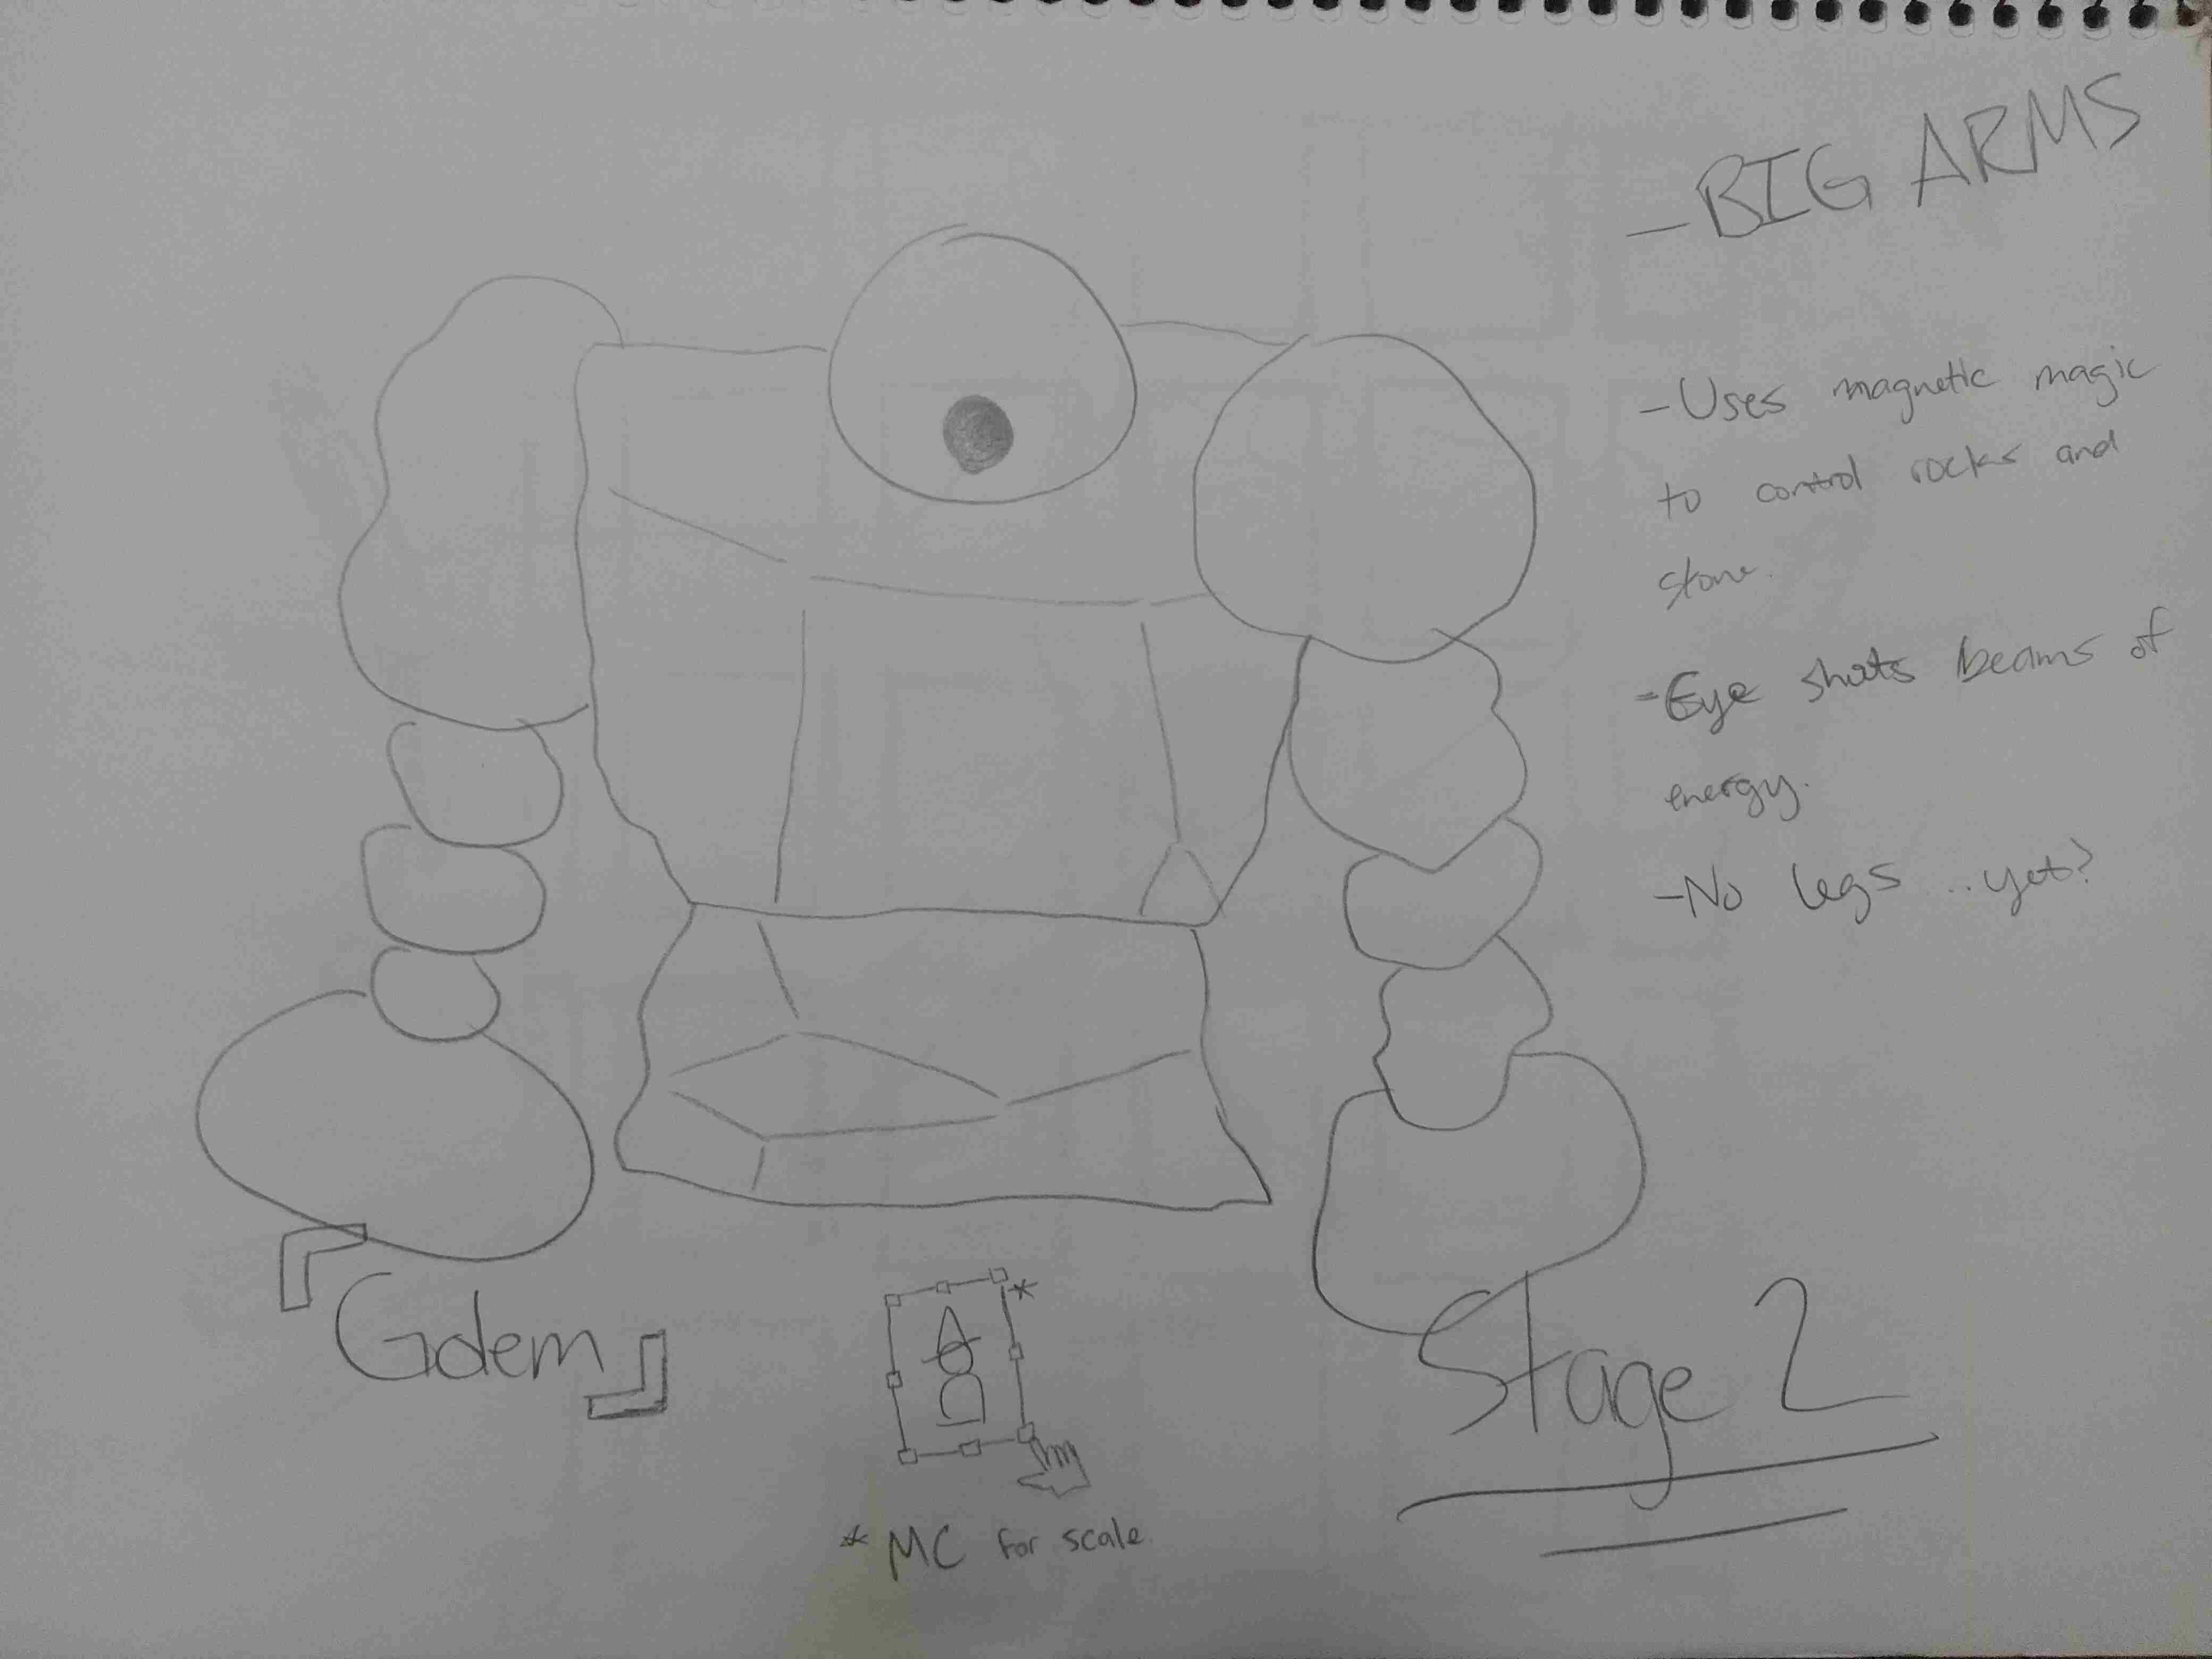 - BIG ARMS
- Uses magnetic magic
to control rocks and
stone.
- Eye shoots beams of
energy.
- No legs ..yet?
「Golem」
*
* MC for scale.
Stage 2